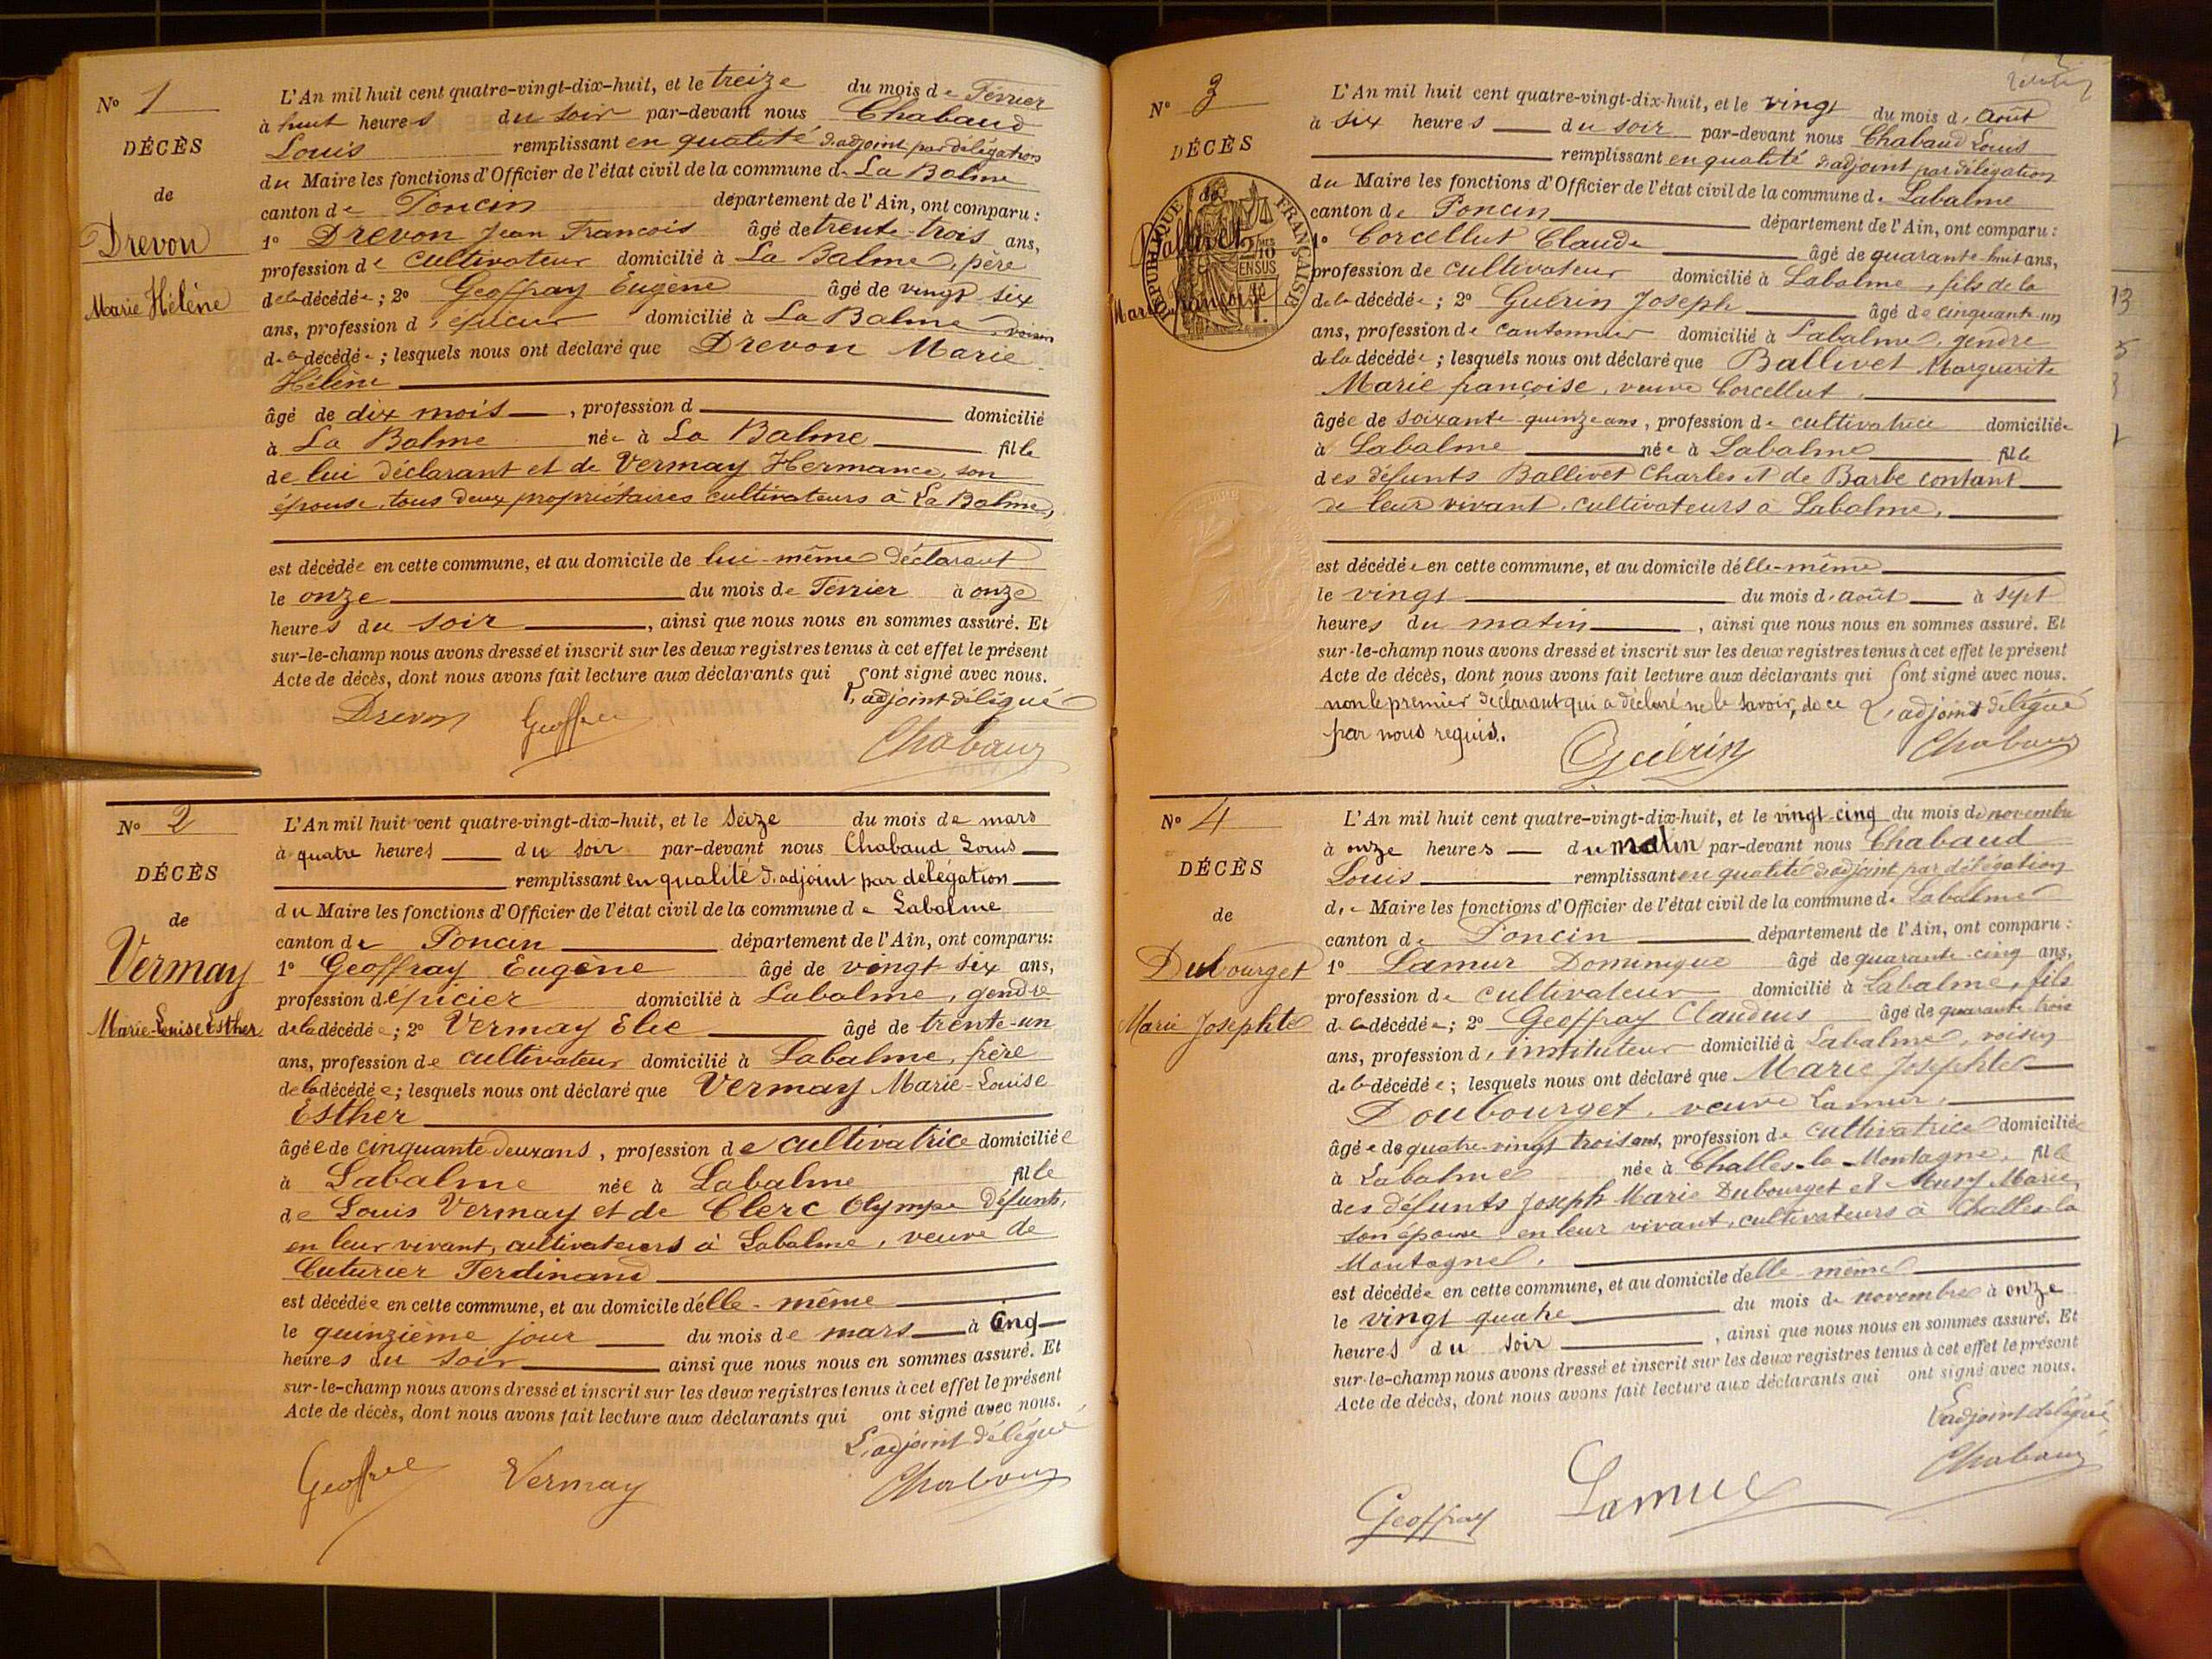 N° 1
DÉCÈS
de
Drevon
Marie Hélène
L'An mil huit cent quatre-vingt-dix-huit, et le treize du mois de Février
à huit heures du soir par-devant nous Chabaud
Louis remplissant en qualité d'adjoint par délégation
du Maire les fonctions d'Officier de l'état civil de la commune de La Balme
canton de Poncin département de l'Ain, ont comparu :
1° Drevon Jean François âgé de trente-trois ans,
profession de cultivateur domicilié à La Balme, père
de la décédée ; 2° Geoffray Eugène âgé de vingt six
ans, profession d'épicier domicilié à La Balme, voisin
de la décédée ; lesquels nous ont déclaré que Drevon Marie
Hélène
âgé de dix mois, profession d domicilié
à La Balme née à La Balme fille
de lui déclarant et de Vermay Hermance, son
épouse, tous deux propriétaires cultivateurs à La Balme,
est décédée en cette commune, et au domicile de lui-même déclarant
le onze du mois de Février à onze
heures du soir, ainsi que nous nous en sommes assuré. Et
sur-le-champ nous avons dressé et inscrit sur les deux registres tenus à cet effet le présent
Acte de décès, dont nous avons fait lecture aux déclarants qui ont signé avec nous.
L'adjoint délégué
Drevon Geoffray Chabaud
N° 2
DÉCÈS
de
Vermay
Marie-Louise Esther
L'An mil huit cent quatre-vingt-dix-huit, et le seize du mois de mars
à quatre heures du soir par-devant nous Chabaud Louis
remplissant en qualité d'adjoint par délégation
du Maire les fonctions d'Officier de l'état civil de la commune de Labalme
canton de Poncin département de l'Ain, ont comparu:
1° Geoffray Eugène âgé de vingt six ans,
profession d'épicier domicilié à Labalme, gendre
de la décédée ; 2° Vermay Elie âgé de trente-un
ans, profession de cultivateur domicilié à Labalme, frère
de la décédée ; lesquels nous ont déclaré que Vermay Marie-Louise
Esther
âgée de cinquante deux ans, profession de cultivatrice domiciliée
à Labalme née à Labalme fille
de Louis Vermay et de Clerc Olympe défunts,
en leur vivant, cultivateurs à Labalme, veuve de
Cuturier Ferdinand
est décédée en cette commune, et au domicile d'elle-même
le quinzième jour du mois de mars à cinq
heures du soir ainsi que nous nous en sommes assuré. Et
sur-le-champ nous avons dressé et inscrit sur les deux registres tenus à cet effet le présent
Acte de décès, dont nous avons fait lecture aux déclarants qui ont signé avec nous.
L'adjoint délégué
Geoffray Vermay Chabaud
N° 3
DÉCÈS
de
Ballivet
Marie Françoise
RÉPUBLIQUE FRANÇAISE
2/10 EN SUS
L'An mil huit cent quatre-vingt-dix-huit, et le vingt du mois d'Août
à six heures du soir par-devant nous Chabaud Louis
remplissant en qualité d'adjoint par délégation
du Maire les fonctions d'Officier de l'état civil de la commune de Labalme
canton de Poncin département de l'Ain, ont comparu :
1° Corcellut Claude âgé de quarante-huit ans,
profession de cultivateur domicilié à Labalme, fils de la
de la décédée ; 2° Guérin Joseph âgé de cinquante-un
ans, profession de cantonnier domicilié à Labalme, gendre
de la décédée ; lesquels nous ont déclaré que Ballivet Marguerite
Marie françoise, veuve Corcellut,
âgée de soixante-quinze ans, profession de cultivatrice domiciliée
à Labalme née à Labalme fille
des défunts Ballivet Charles et de Barbe Contant
de leur vivant, cultivateurs à Labalme,
est décédée en cette commune, et au domicile d'elle-même
le vingt du mois d'août à sept
heures du matin, ainsi que nous nous en sommes assuré. Et
sur-le-champ nous avons dressé et inscrit sur les deux registres tenus à cet effet le présent
Acte de décès, dont nous avons fait lecture aux déclarants qui ont signé avec nous.
non le premier déclarant qui a déclaré ne le savoir, de ce L'adjoint délégué
par nous requis. Guérin Chabaud
N° 4
DÉCÈS
de
Dubourget
Marie Josephte
L'An mil huit cent quatre-vingt-dix-huit, et le vingt-cinq du mois de novembre
à onze heures du matin par-devant nous Chabaud
Louis remplissant en qualité d'adjoint par délégation
du Maire les fonctions d'Officier de l'état civil de la commune de Labalme
canton de Poncin département de l'Ain, ont comparu :
1° Lamur Dominique âgé de quarante-cinq ans,
profession de cultivateur domicilié à Labalme, fils
de la décédée ; 2° Geoffray Claudius âgé de quarante trois
ans, profession d'instituteur domicilié à Labalme, voisin
de la décédée ; lesquels nous ont déclaré que Marie Josephte
Doubourget, veuve Lamur,
âgée de quatre-vingt trois ans, profession de cultivatrice domiciliée
à Labalme née à Challes-la-Montagne, fille
des défunts Joseph Marie Dubourget et Musy Marie,
son épouse en leur vivant, cultivateurs à Challes-la
Montagne,
est décédée en cette commune, et au domicile d'elle-même
le vingt quatre du mois de novembre à onze
heures du soir, ainsi que nous nous en sommes assuré. Et
sur-le-champ nous avons dressé et inscrit sur les deux registres tenus à cet effet le présent
Acte de décès, dont nous avons fait lecture aux déclarants qui ont signé avec nous.
L'adjoint délégué
Chabaud
Geoffray Lamur